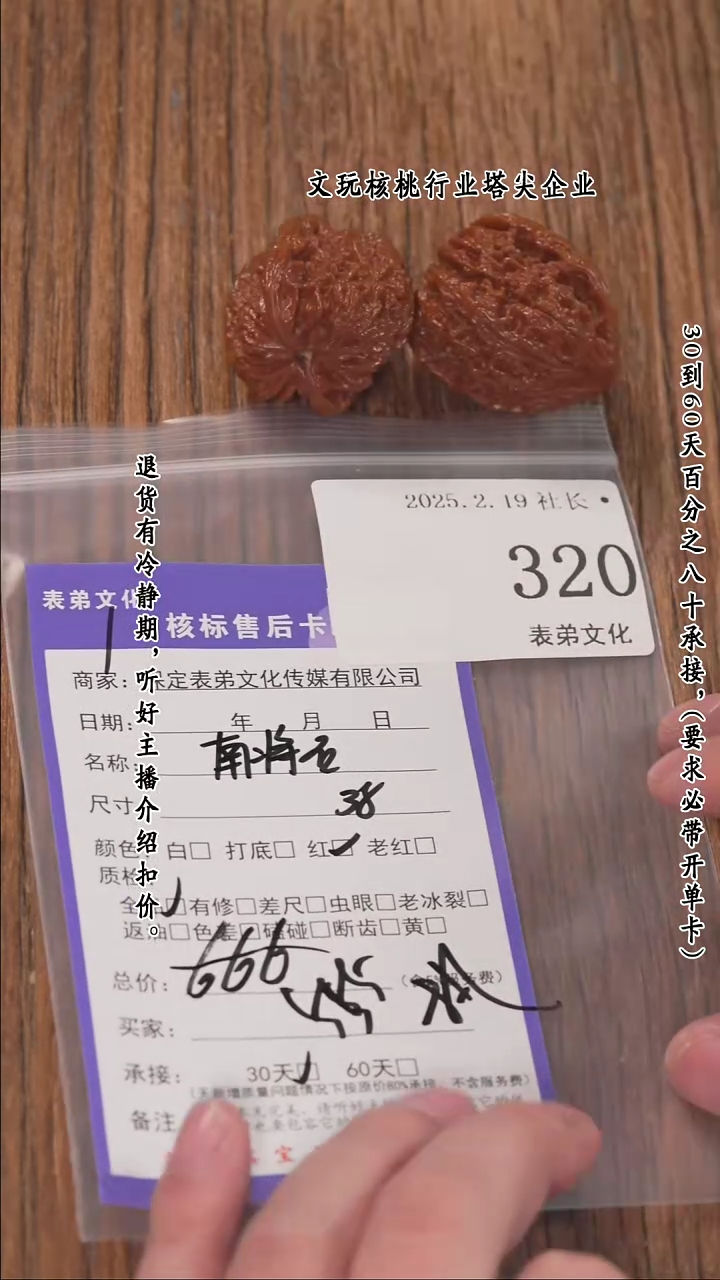 文玩核桃行业塔尖企业
30到60天百分之八十承接，（要求必带开单卡）
退货有冷静期，听好主播介绍扣价。
2025.2.19 社长
320
表弟文化
表弟文化
核标售后卡
商家：保定表弟文化传媒有限公司
日期： 年 月 日
名称： 南将石
尺寸 38
颜色：白□ 打底□ 红☑ 老红□
质检
全品☑有修□差尺□虫眼□老冰裂□
返油□色差□磕碰□断齿□黄□
总价： 666 （含5%服务费）
买家：
承接： 30天☑ 60天□
（无新增质量问题情况下按原价80%承接，不含服务费）
备注